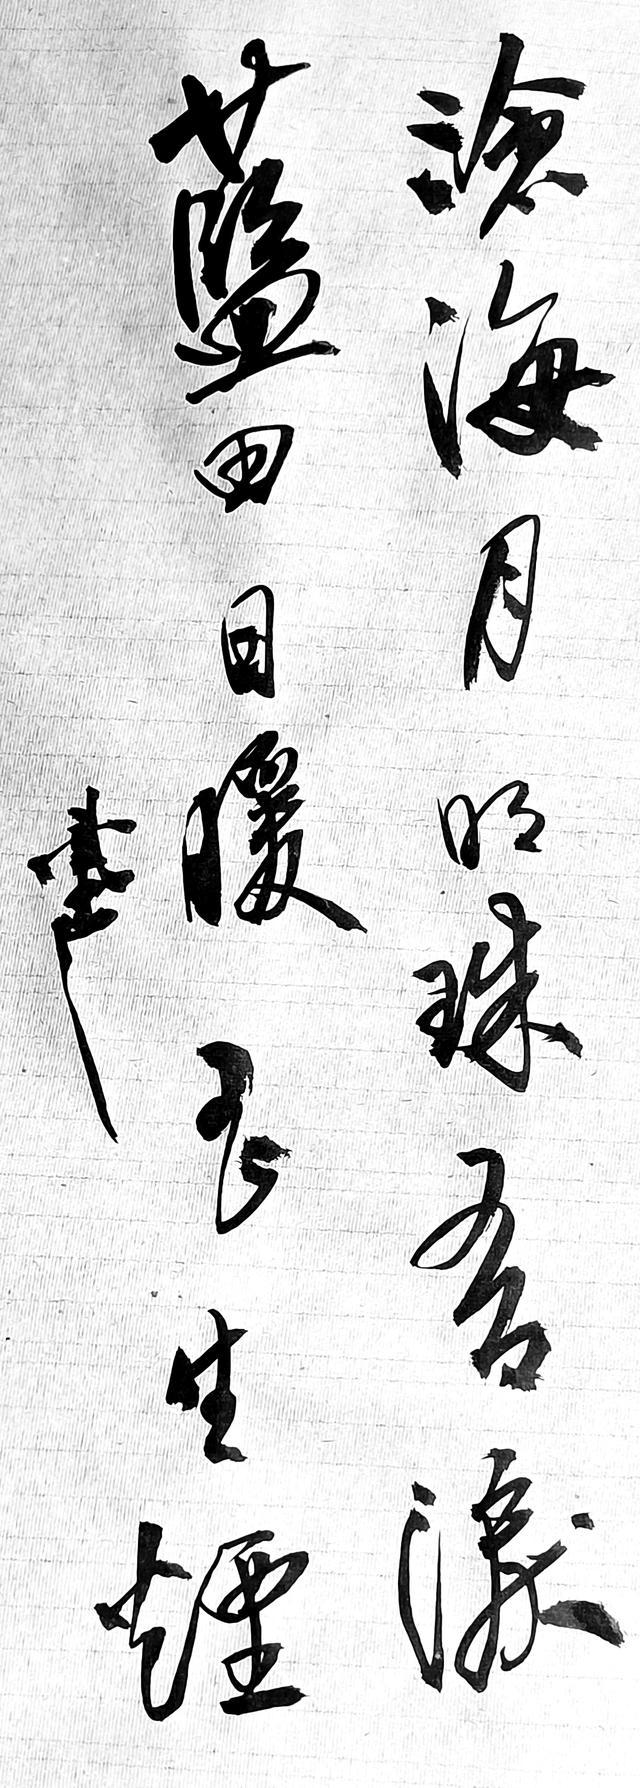 滄海月明珠有淚
藍田日暖玉生煙
書